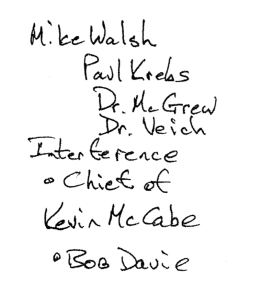 Mike Walsh
Paul Krebs
Dr. McGrew
Dr. Veich
Interference
• Chief of
Kevin McCabe
• Bob Davie